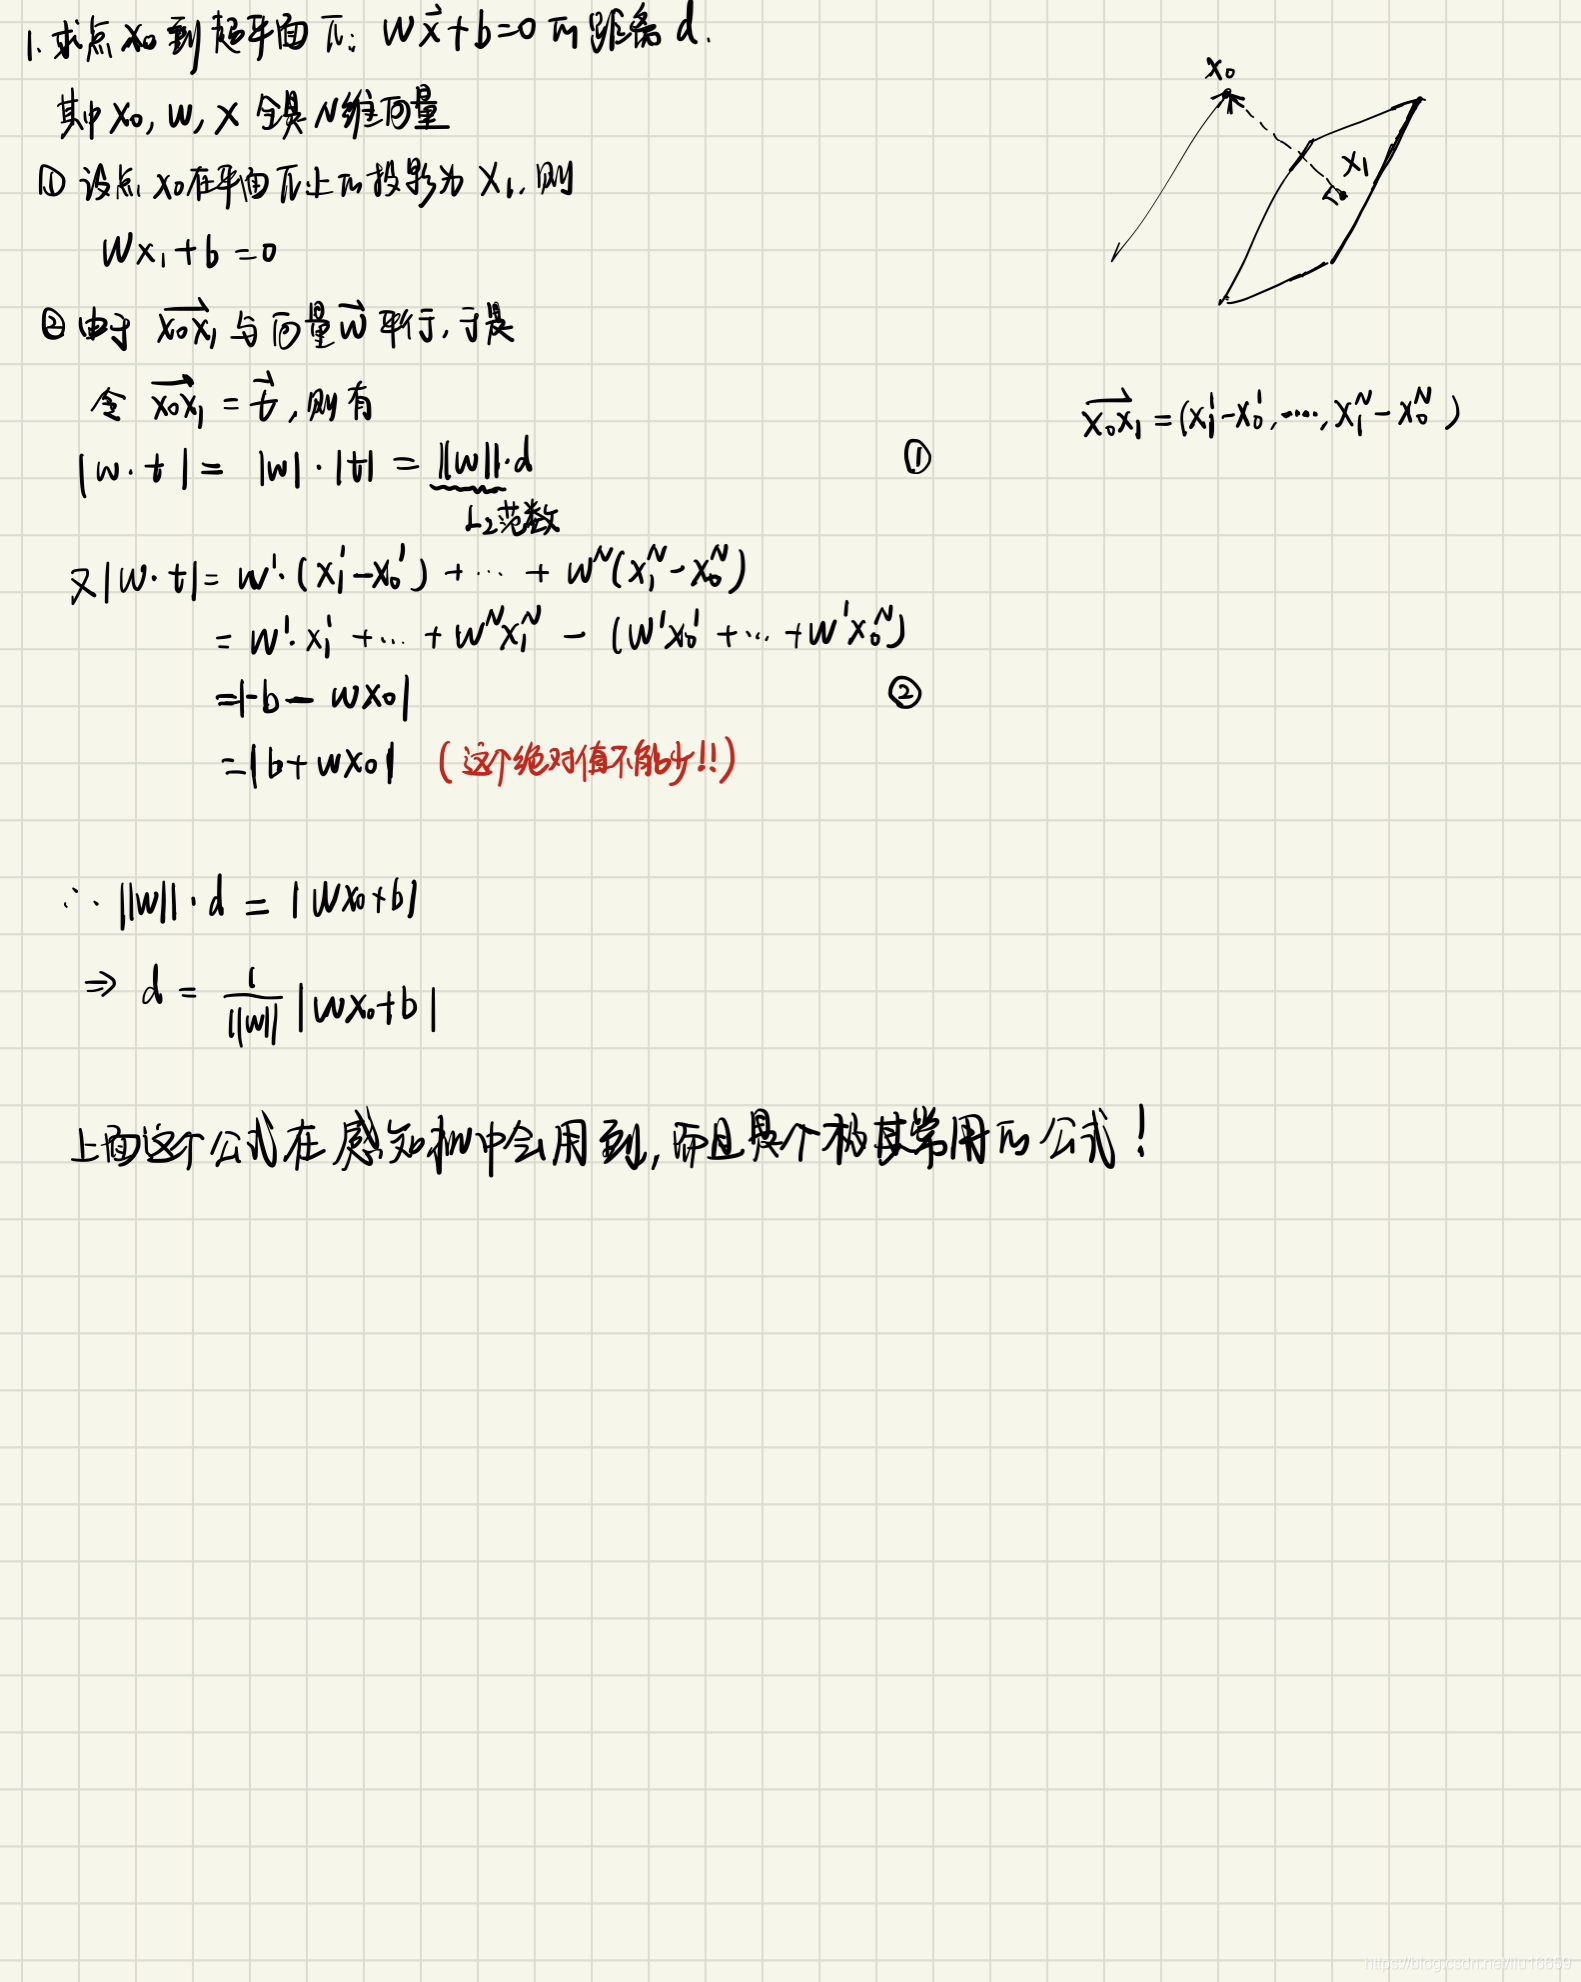 1. 求点 x₀ 到超平面 π: w x⃗ + b = 0 的距离 d.
其中 x₀, w, x 全是 N维向量
① 设点 x₀ 在平面 π 上的投影为 x₁, 则
w x₁ + b = 0
② 由于 x₀x₁→ 与向量 w⃗ 平行, 于是
令 x₀x₁→ = t⃗, 则有
|w · t| = |w| · |t| = ||w|| · d ①
L₂范数
又 |w · t| = w¹·(x₁¹ - x₀¹) + ... + wᴺ(x₁ᴺ - x₀ᴺ)
= w¹·x₁¹ + ... + wᴺx₁ᴺ - (w¹x₀¹ + ... + w¹x₀ᴺ)
= |-b - wx₀| ②
= |b + wx₀| (这个绝对值不能少!!)
∴ ||w|| · d = |wx₀ + b|
⇒ d = 1/||w|| |wx₀ + b|
上面这个公式在感知机中会用到, 而且是个极其常用的公式!
x₀
x₁
x₀x₁→ = (x₁¹ - x₀¹, ....., x₁ᴺ - x₀ᴺ)
https://blog.csdn.net/liu16659